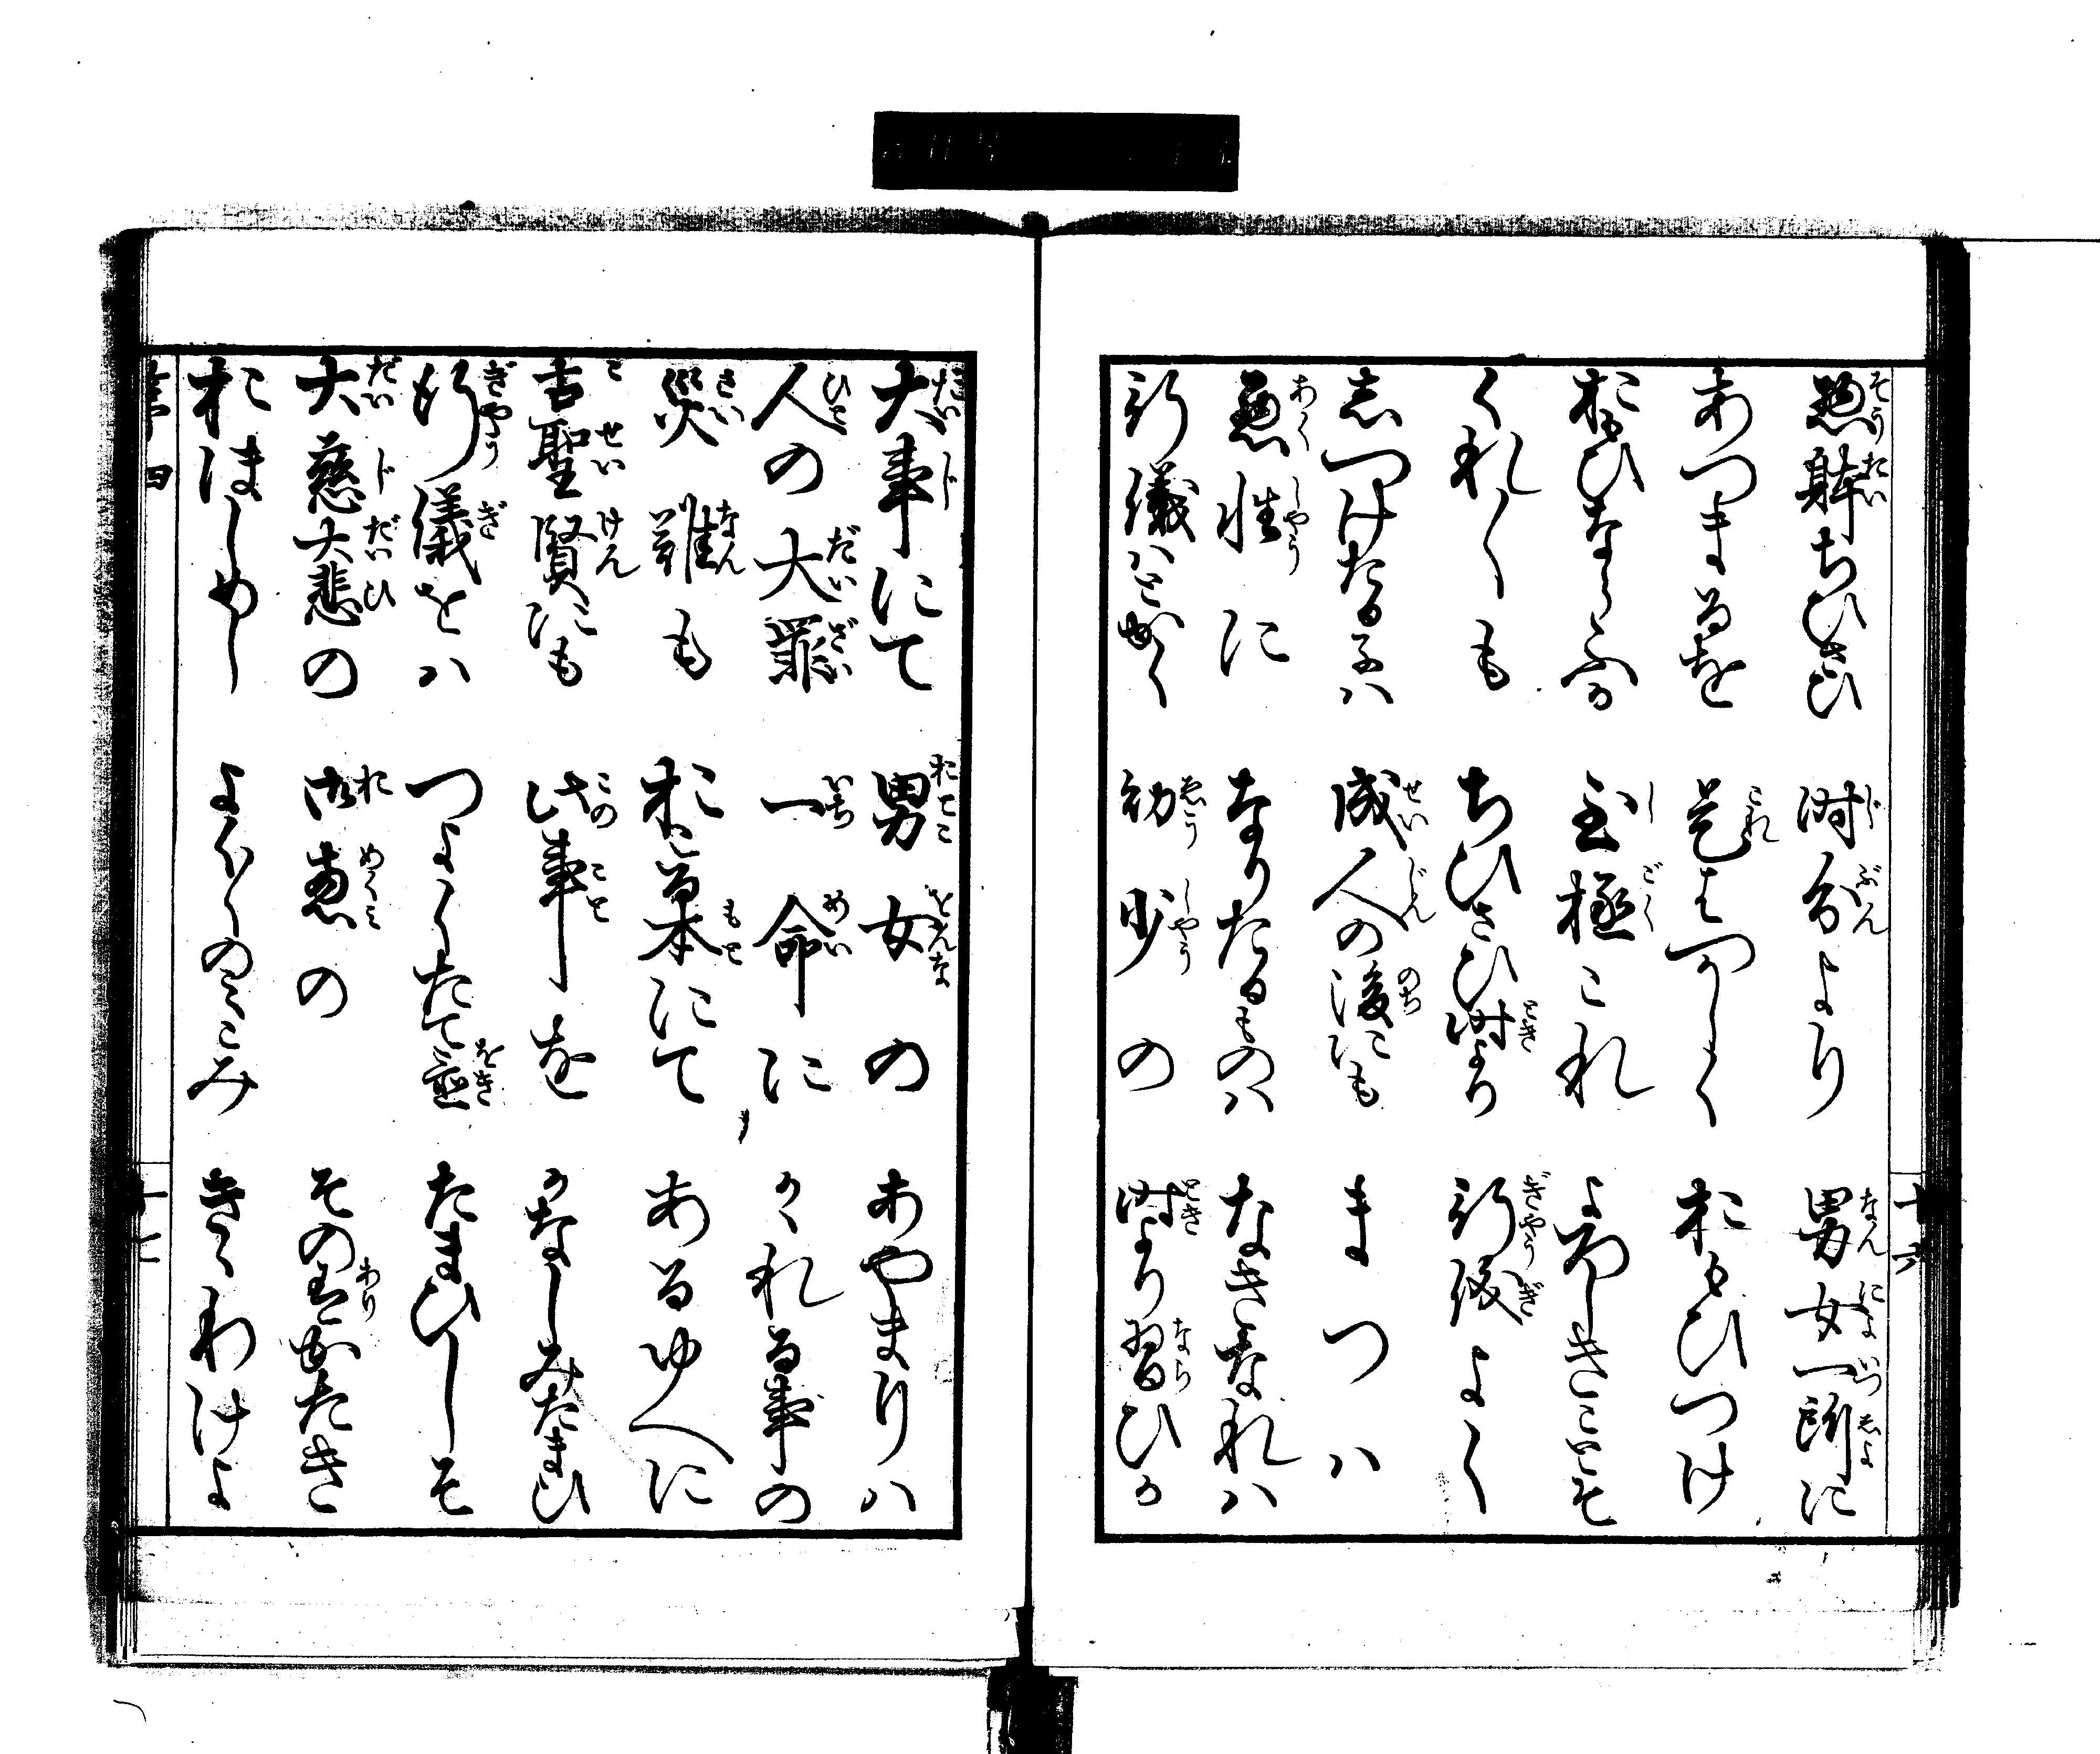 惣躰ちひさひ 時分より 男女一所に
あつまるを 是はつかしく おもひつけ
おもひならふか 至極これ よろしきことそ
くれ〳〵も ちひさひ時より 行儀よく
志つけたる子ハ 成人の後にも まつハ
悪性に なりたるものハ なきなれハ
行儀ハとかく 幼少の 時より習ひか
十六
大事にて 男女の あやまりハ
人の大罪 一命に かゝれる事の
災難も おこる本にて あるゆへに
古聖賢にも 此事を かなしみたまひ
行儀をハ つよくたて置 たまひしそ
大慈大悲の 御恵の その有かたき
おほしめし よく〳〵のみこみ きゝわけよ
十七